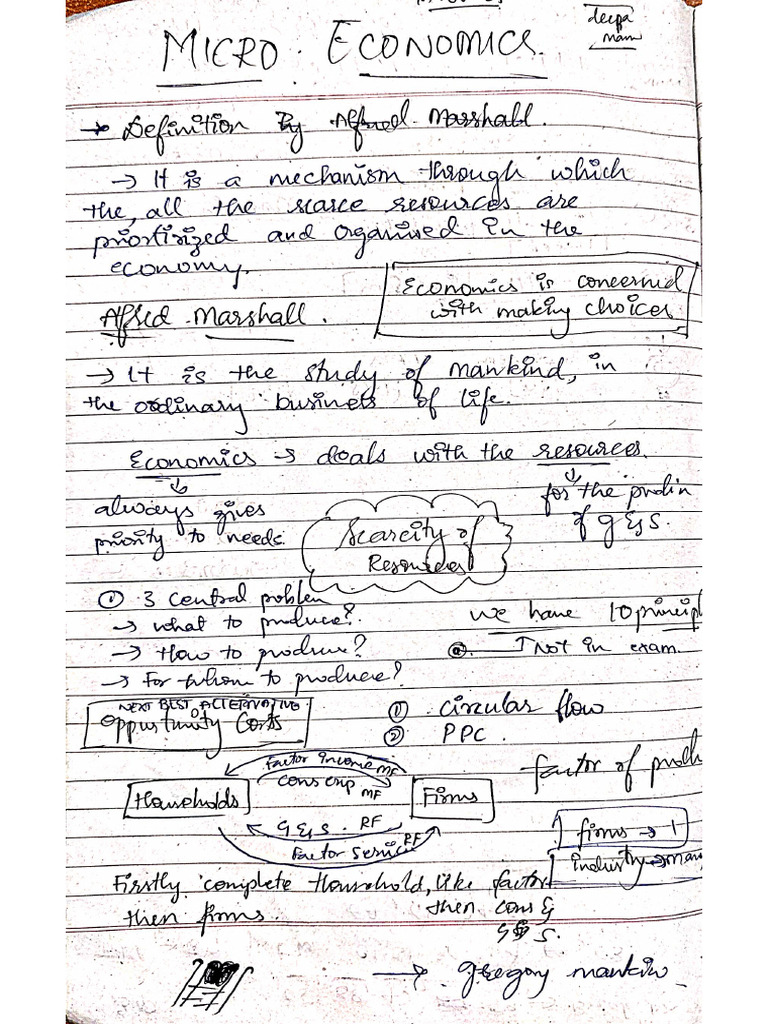 deepa
mam
MICRO ECONOMICS.
→ Definition By Alfred Marshall.
→ It is a mechanism through which
the, all the scarce resources are
priortirized and organised in the
economy.
Economics is concerned
with making choices
Alfred Marshall.
→ It is the study of mankind, in
the ordinary business of life.
Economics → deals with the resources.
always gives
priority to needs.
for the prodn
of g & s.
Scarcity of
Resources
① 3 central problem
→ what to produce?
→ How to produce?
→ For whom to produce?
we have 10 princip
↑ Not in exam.
NEXT BEST ALTERNATIVE
Oppurtunity Costs
① circular flow
② PPC.
Factor income MF
Cons exp MF
Households
Firms
G & S. RF
Factor Service RF
factor of
firms → 1
industry → man
Firstly complete Household, like factor
then firms.
then cons &
G & S.
→ Gregory mankiw.